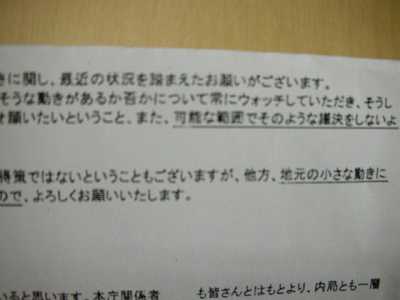 きに関し、最近の状況を踏まえたお願いがございます。
そうな動きがあるか否かについて常にウォッチしていただき、そうし
お願いたいということ、また、可能な範囲でそのような議決をしないよ
得策ではないということもございますが、他方、地元の小さな動きに
ので、よろしくお願いいたします。
いると思います。本庁関係者
も皆さんとはもとより、内局とも一層